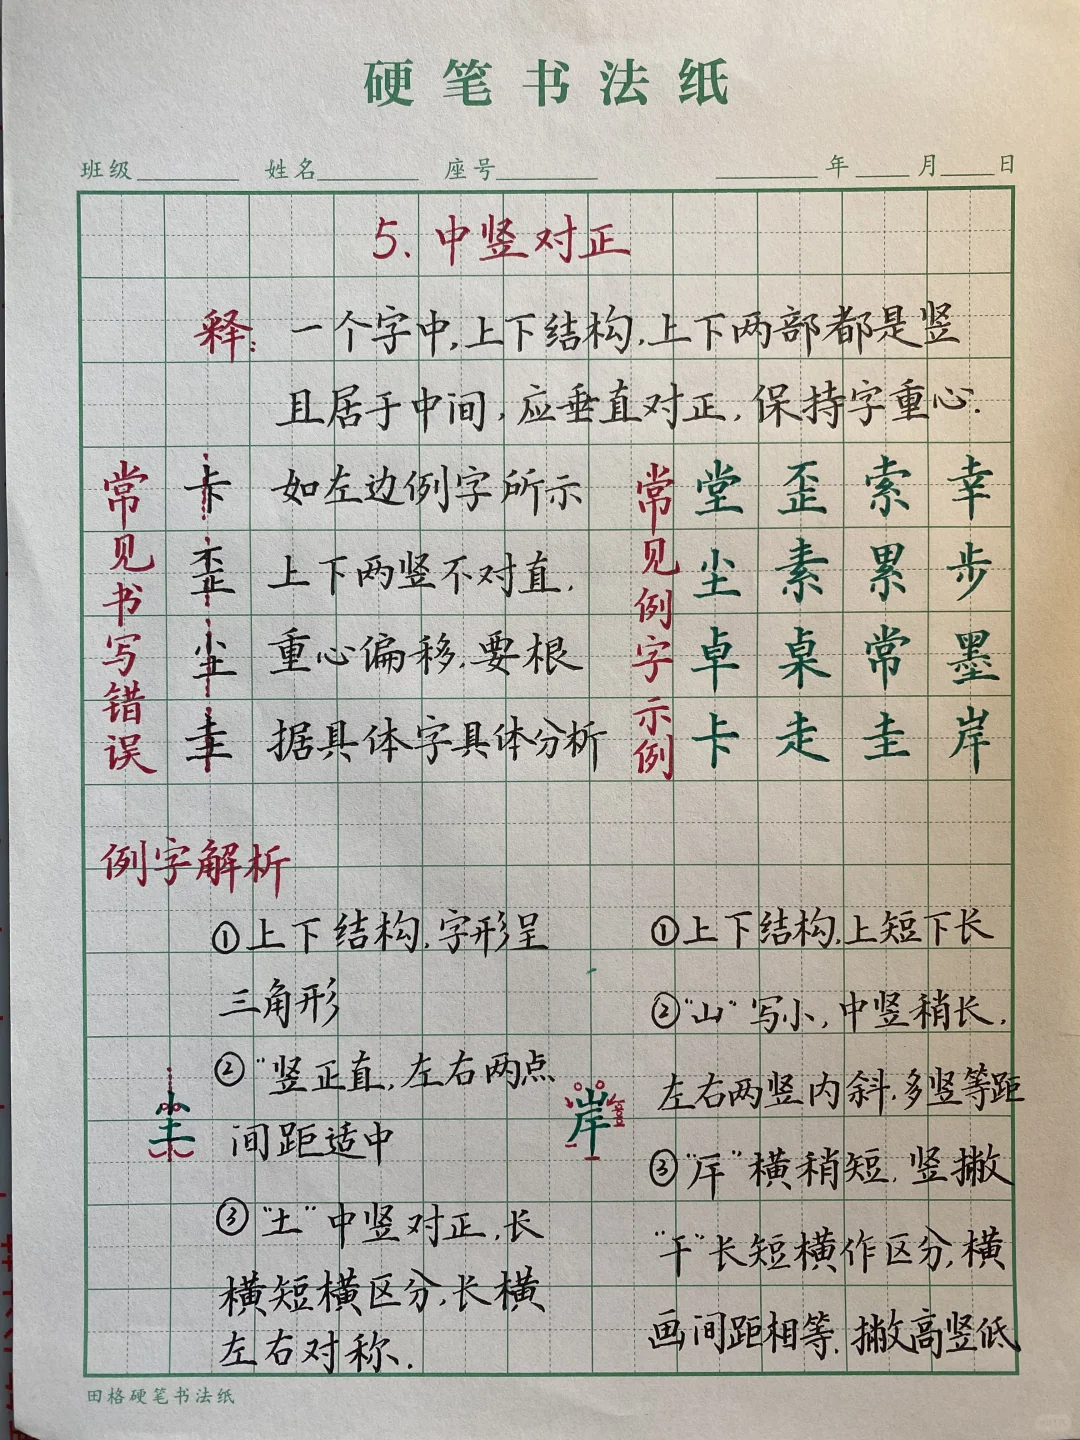 硬笔书法纸
班级 姓名 座号 年 月 日
5.中竖对正
释: 一个字中,上下结构,上下两部都是竖
且居于中间,应垂直对正,保持字重心.
常见书写错误
卡 如左边例字所示
歪 上下两竖不对直,
尘 重心偏移,要根
圭 据具体字具体分析
常见例字示例
堂 歪 索 幸
尘 素 累 步
卓 桌 常 墨
卡 走 圭 岸
例字解析
尘
①上下结构,字形呈
三角形
②"竖正直,左右两点
间距适中
③"土"中竖对正,长
横短横区分,长横
左右对称.
岸
①上下结构,上短下长
②"山"写小,中竖稍长,
左右两竖内斜,多竖等距
③"厈"横稍短,竖撇
"干"长短横作区分,横
画间距相等,撇高竖低
田格硬笔书法纸